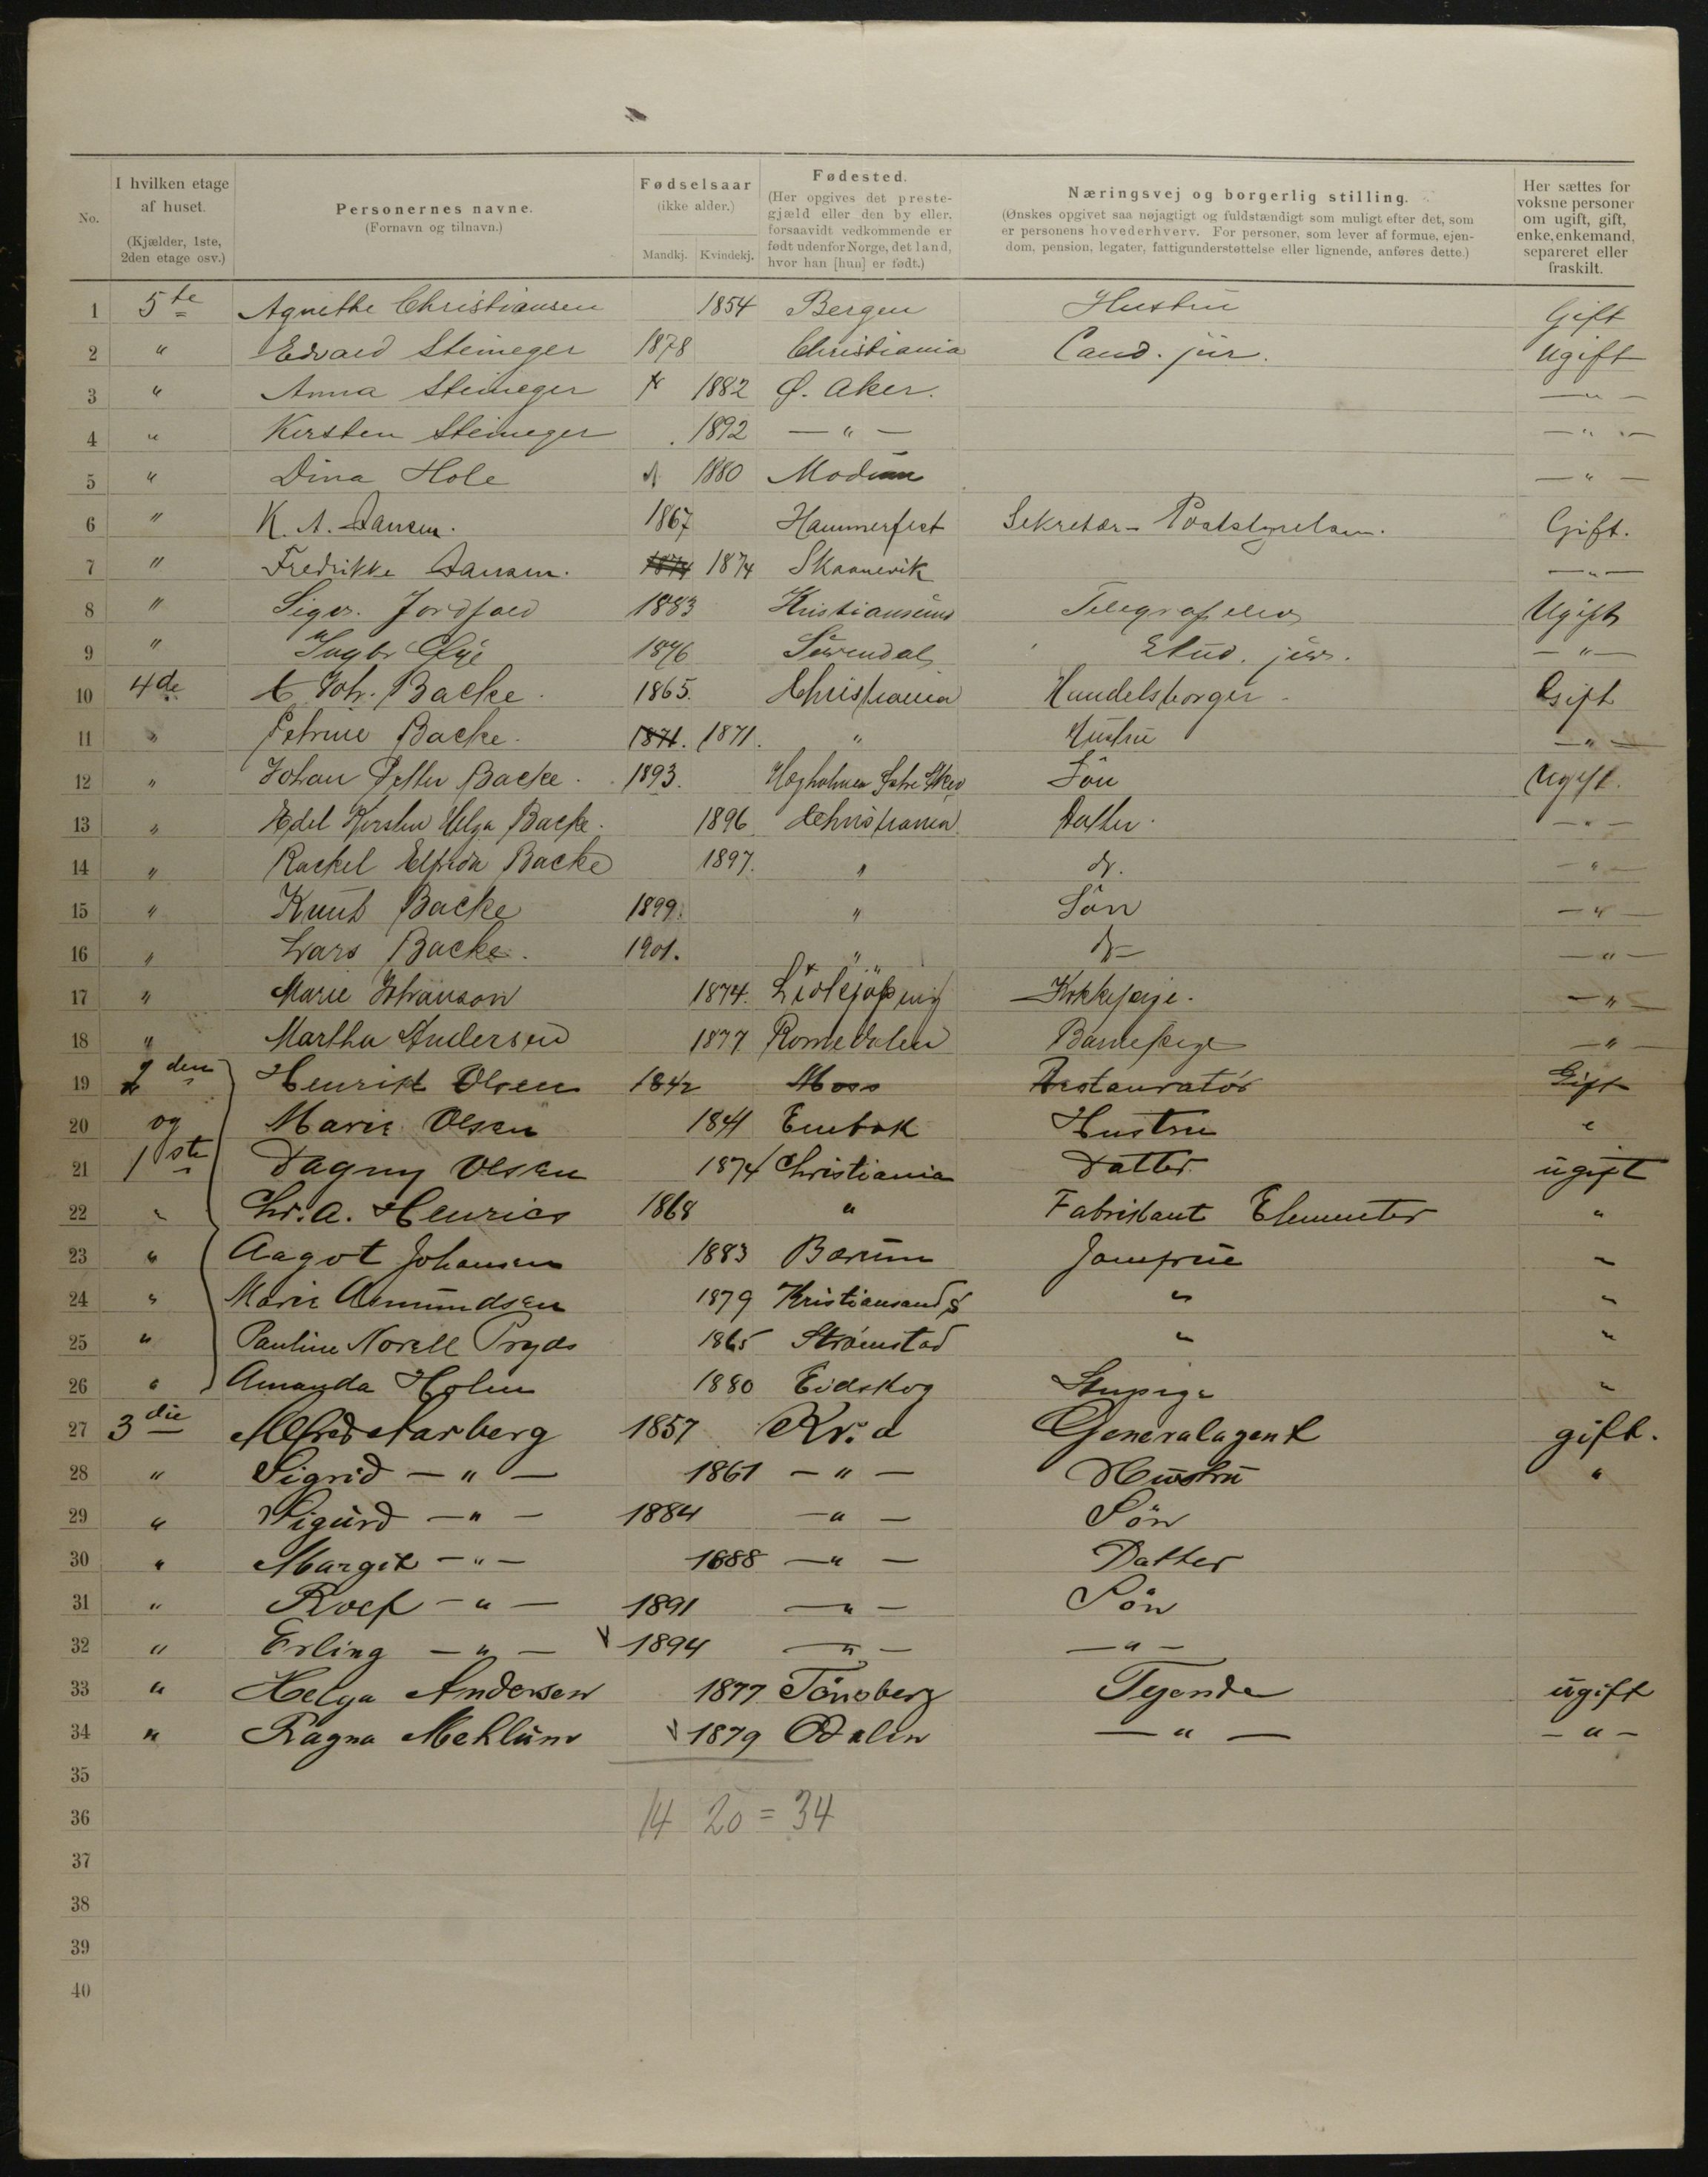 No. | I hvilken etage af huset. (Kjælder, 1ste, 2den etage osv.) | Personernes navne. (Fornavn og tilnavn.) | Fødselsaar (ikke alder.) Mandkj. Kvindekj. | Fødested. (Her opgives det prestegjæld eller den by eller, forsaavidt vedkommende er født udenfor Norge, det land, hvor han [hun] er født.) | Næringsvej og borgerlig stilling. (Ønskes opgivet saa nøjagtigt og fuldstændigt som muligt efter det, som er personens hovederhverv. For personer, som lever af formue, ejendom, pension, legater, fattigunderstøttelse eller lignende, anføres dette.) | Her sættes for voksne personer om ugift, gift, enke, enkemand, separeret eller fraskilt.
1 5te Agnethe Christiansen 1854 Bergen Hustru Gift
2 " Edvard Steineger 1878 Christiania Cand. jur. Ugift
3 " Anna Steineger 1882 Ø. Aker. — " —
4 " Kirsten Steineger 1892 — " — — " —
5 " Dina Hole 1880 Modum — " —
6 " K. A. Jansen. 1867 Hammerfest Sekretær - Poststyrelsen. Gift.
7 " Fredrikke Jansen. 1874 1874 Skaanevik — " —
8 " Sigv. Jordfald 1883 Kristiansund Telegrafelev Ugift
9 " Ingbr Øye 1876 Surendal Stud. jur. — " —
10 4de Joh. Backe. 1865. Christiania Handelsborger - Gift
11 " Petrine Backe. 1871. 1871. " Hustru — " —
12 " Johan Petter Backe. 1893. Søn Ugift.
13 " Edel Kirsten Helga Backe. 1896. Christiania. Datter. — " —
14 " Rachel Elfrida Backe 1897. " do. — " —
15 " Knut Backe 1899. " Søn — " —
16 " Lars Backe. 1901. " do — " —
17 " Marie Johanson 1874. Lidkjöping Kokkepige. — " —
18 " Martha Andersen 1877 Romedalen Barnepige — " —
19 2den Henrik Olsen 1842 Moss Restauratör Gift
20 og Marie Olsen 1841 Enebak Hustru "
21 1ste Dagny Olsen 1874 Christiania Datter. ugift
22 " Chr. A. Henrics 1868 " Fabrikant Elementer "
23 " Aagot Johansen 1883 Bærum Jomfrue "
24 " Marie Amundsen 1879 Kristiansand S " "
25 " Pauline Norell Pryds 1865 Strømstad " "
26 " Amanda Holm 1880 Eidskog Stupige "
27 3die Alfred Aarberg 1857 Kr.a Generalagent gift.
28 " Sigrid — " — 1861 — " — Hustru "
29 " Sigurd — " — 1884 — " — Søn
30 " Margit — " — 1888 — " — Datter
31 " Rolf — " — 1891 — " — Søn
32 " Erling — " — 1894 — " — — " —
33 " Helga Andersen 1877 Tönsberg Tyende ugift
34 " Ragna Mehlum 1879 Odalen — " — — " —
35
36 14 20 = 34
37
38
39
40